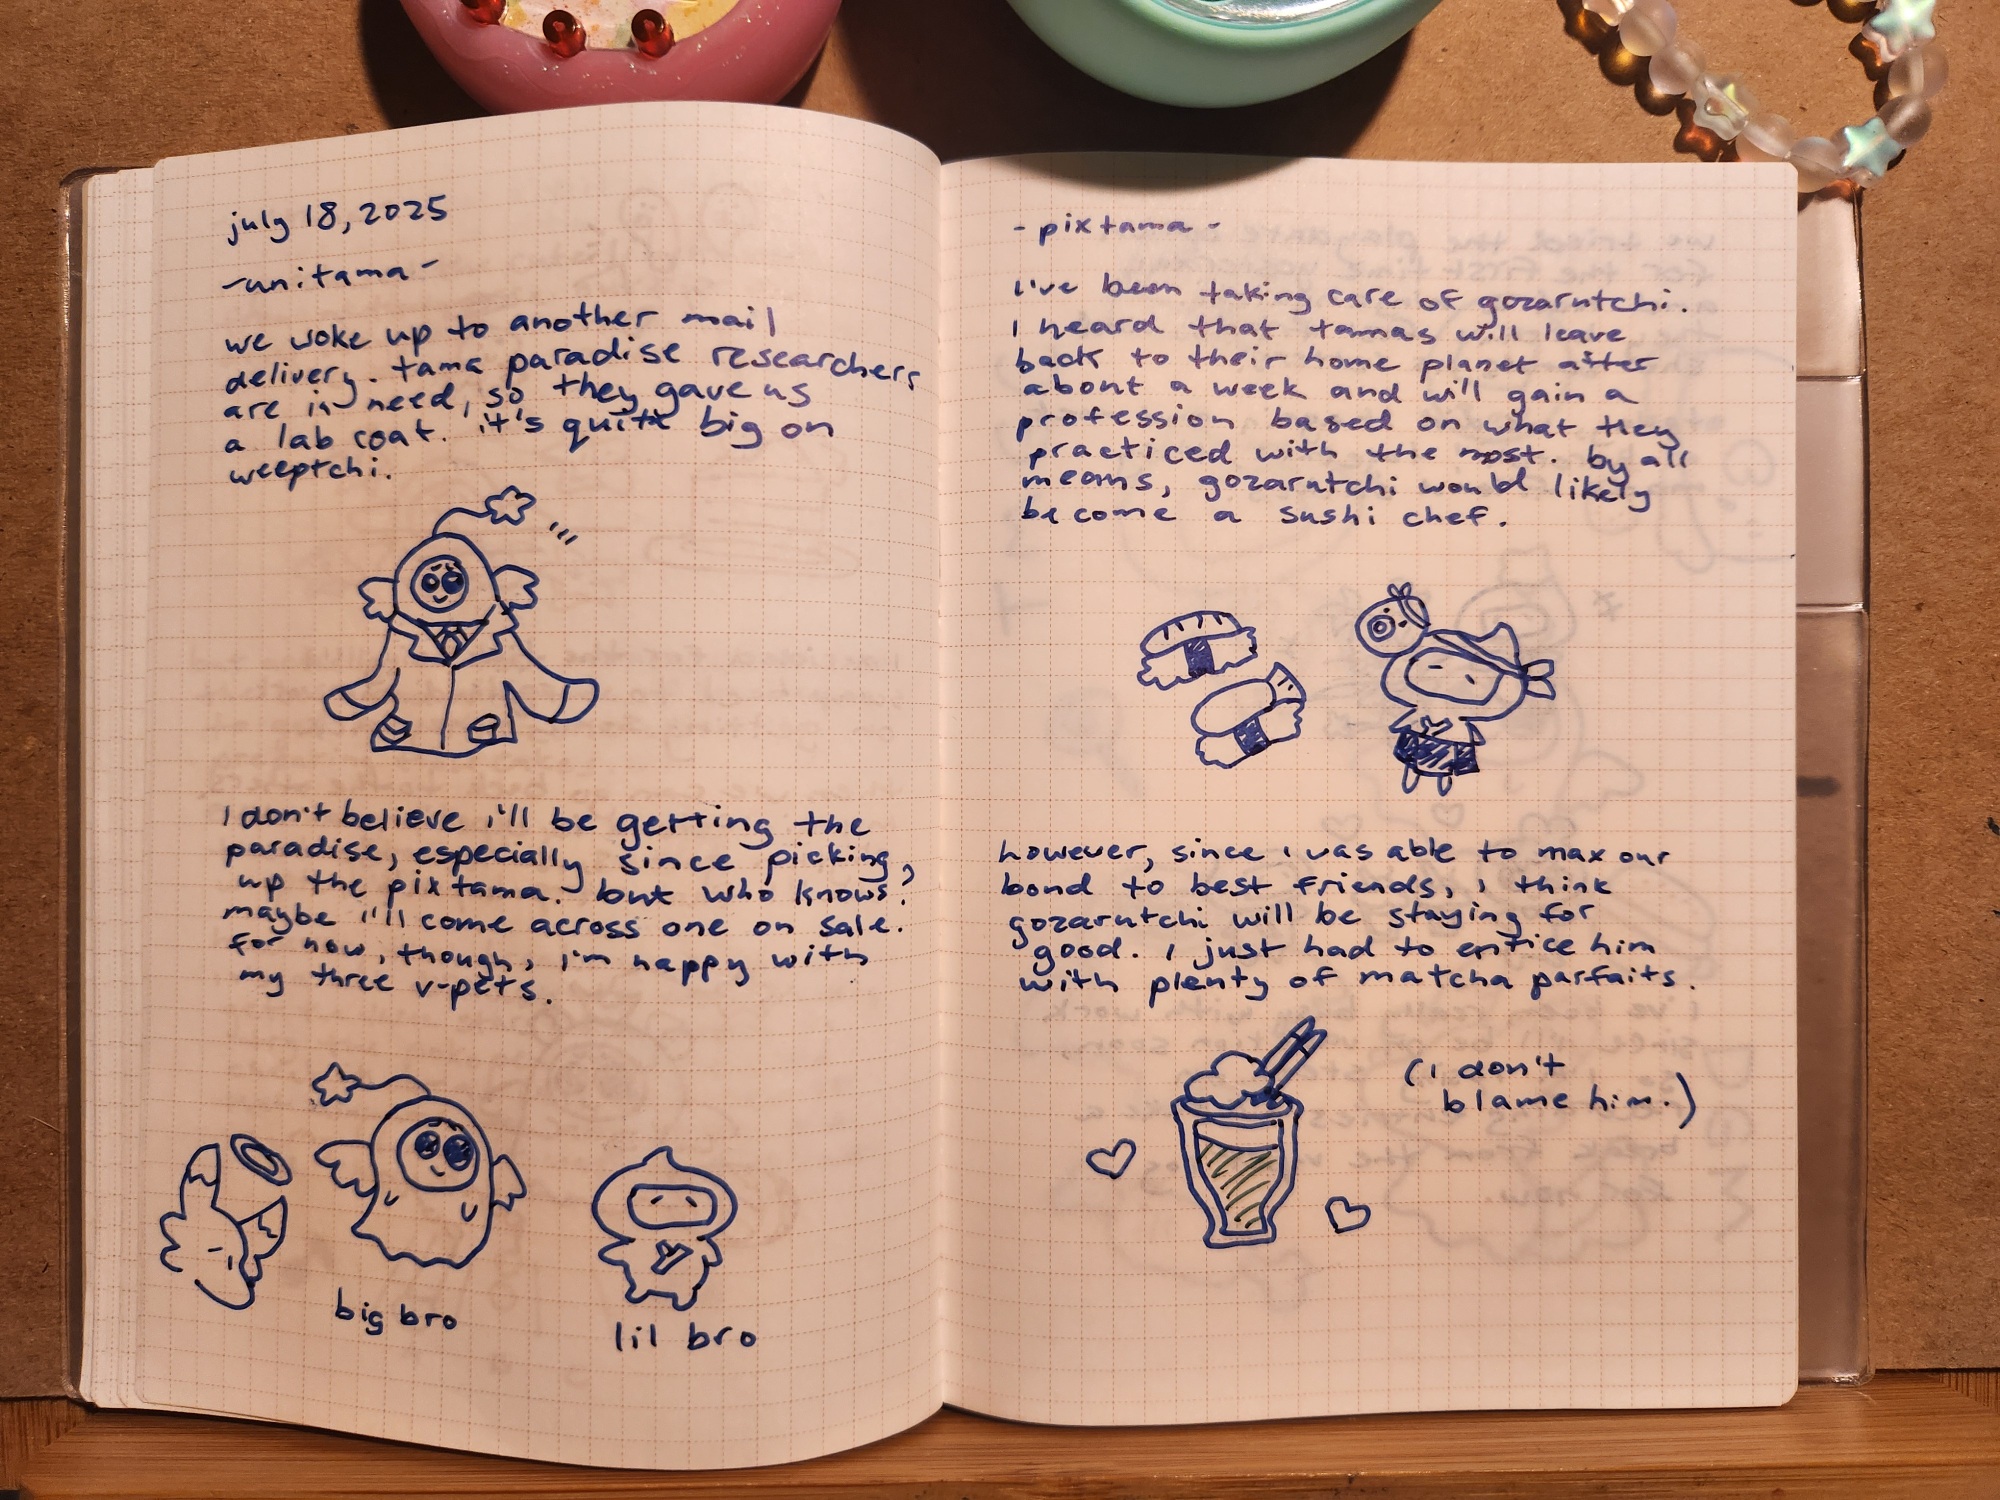 july 18, 2025
-unitama-
we woke up to another mail
delivery. tama paradise researchers
are in need, so they gave us
a lab coat. it's quite big on
weeptchi.
i don't believe i'll be getting the
paradise, especially since picking
up the pixtama. but who knows?
maybe i'll come across one on sale.
for now, though, i'm happy with
my three v-pets.
big bro
lil bro
-pixtama-
i've been taking care of gozarutchi.
i heard that tamas will leave
back to their home planet after
about a week and will gain a
profession based on what they
practiced with the most. by all
means, gozarutchi would likely
become a sushi chef.
however, since i was able to max our
bond to best friends, i think
gozarutchi will be staying for
good. i just had to entice him
with plenty of matcha parfaits.
(i don't
blame him.)